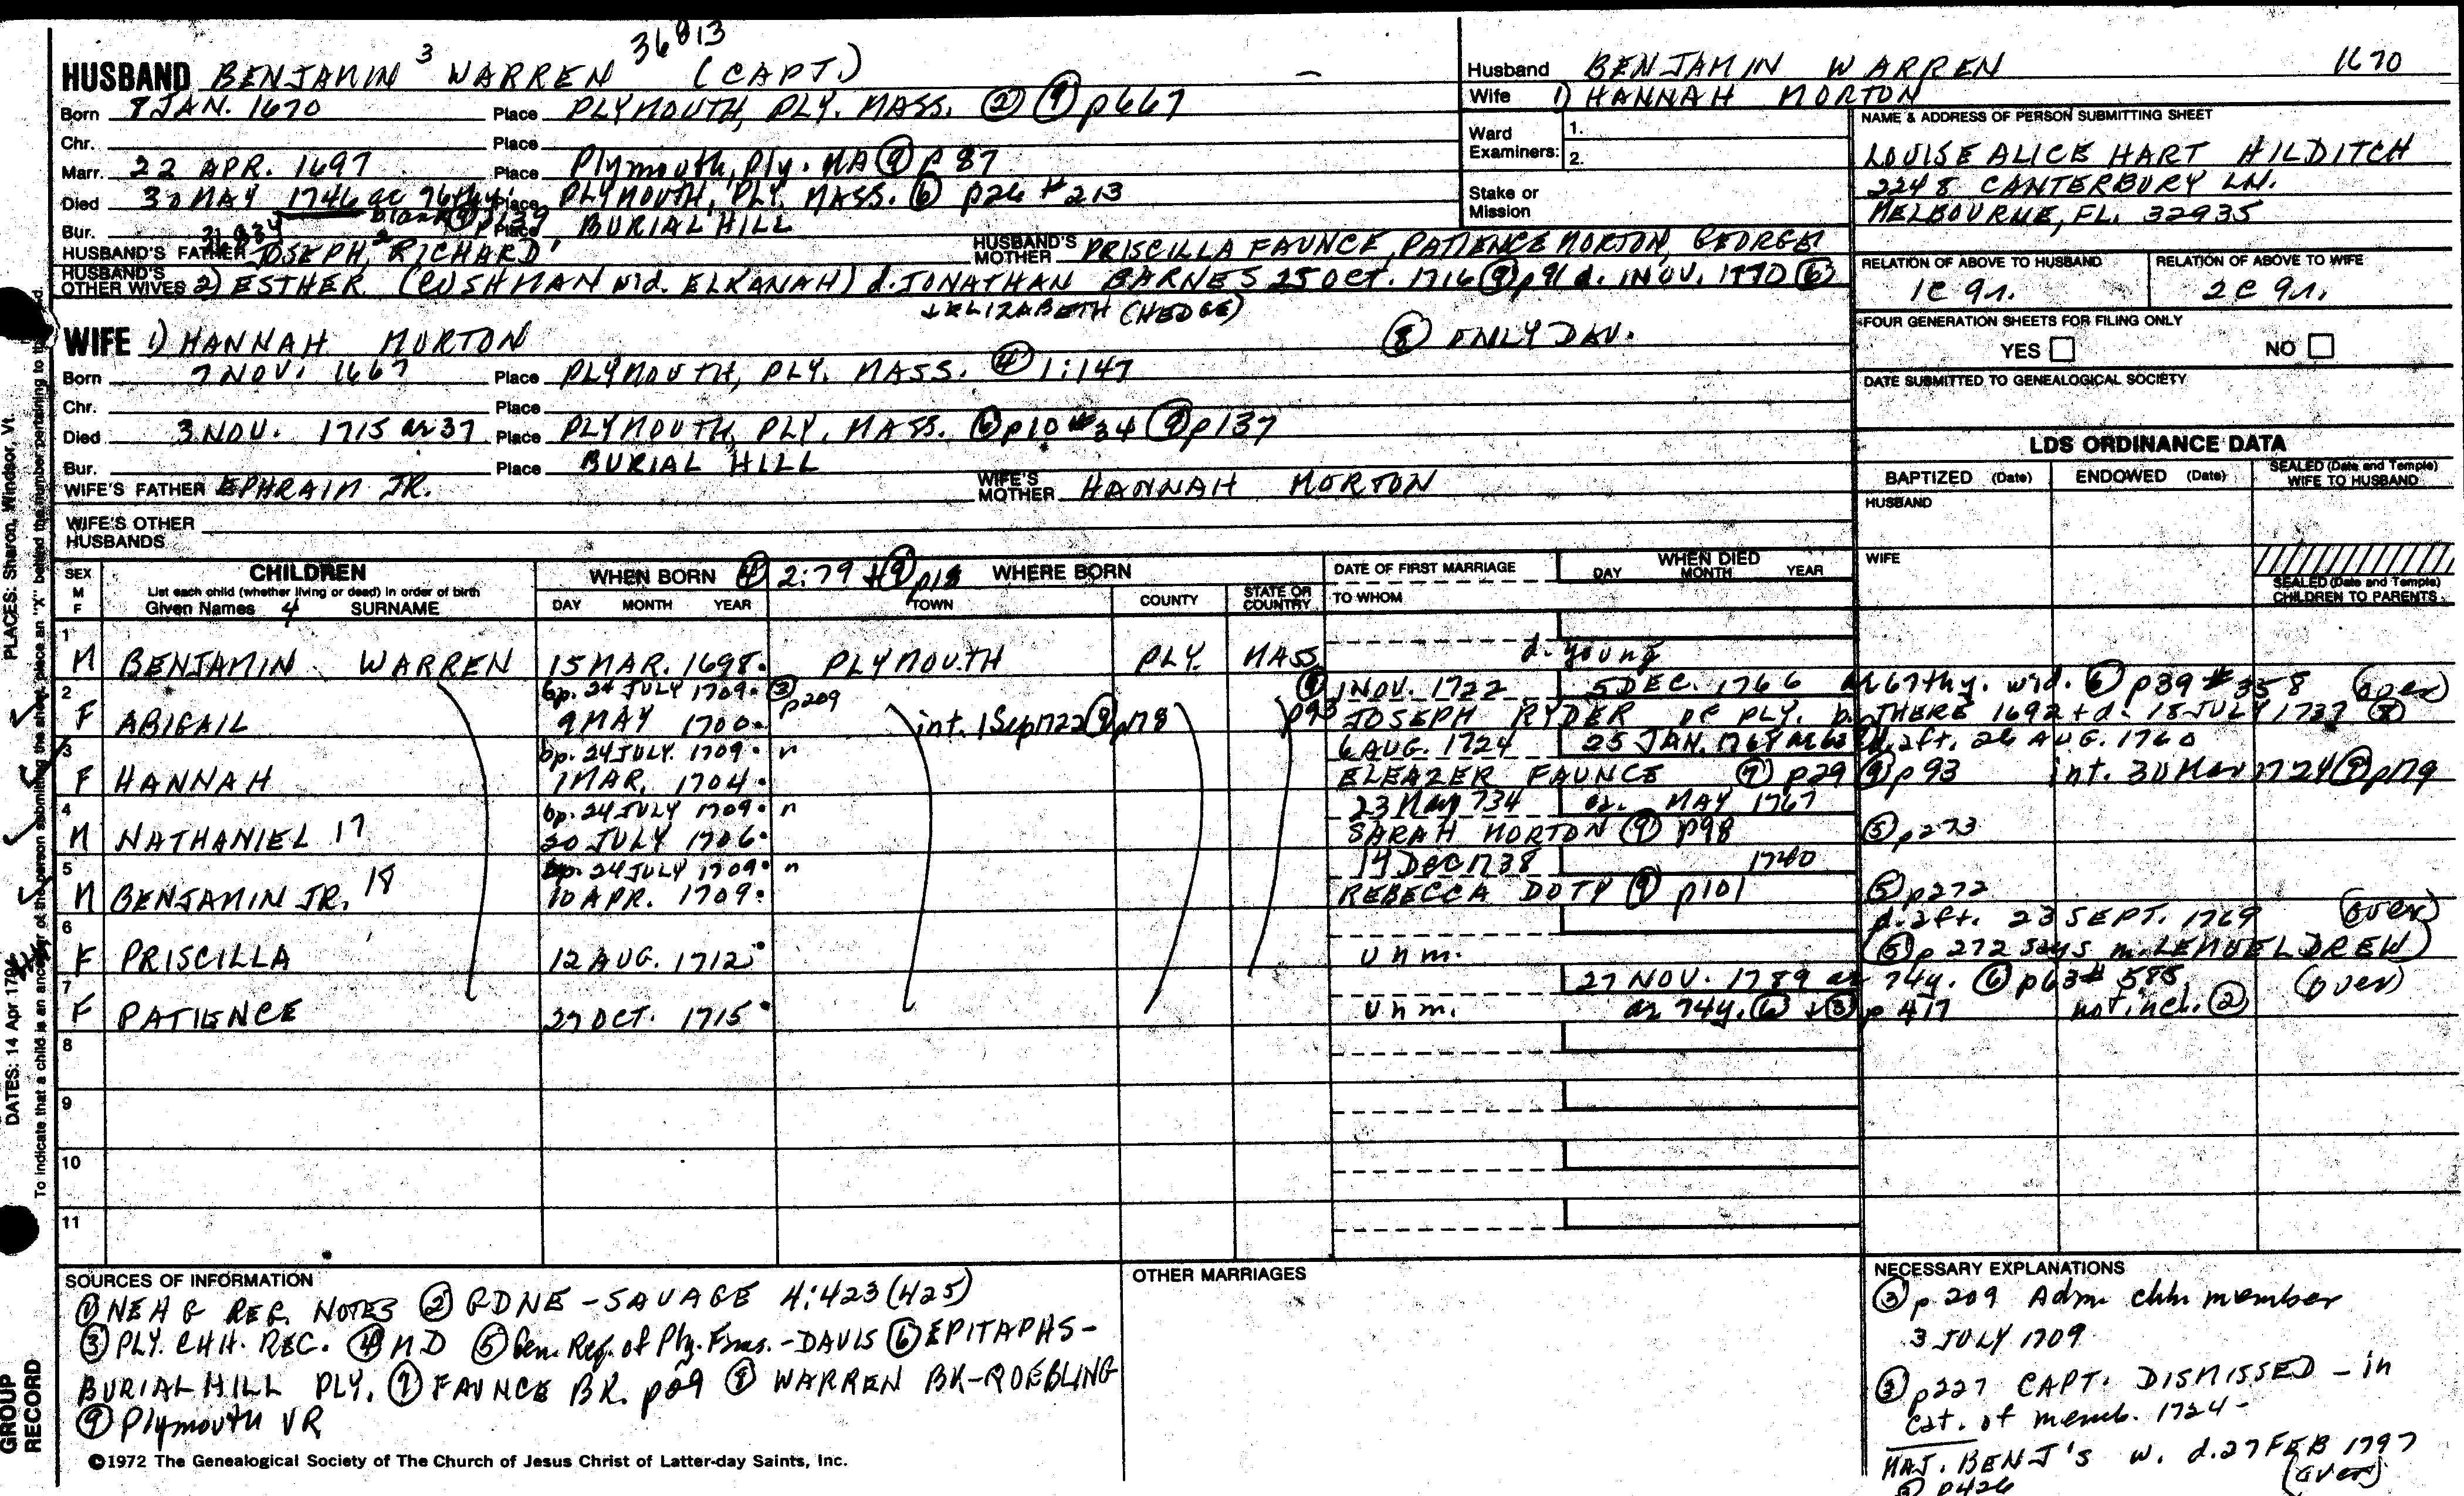 36813
HUSBAND BENJAMIN 3 WARREN (CAPT.)
Born 8 JAN. 1670 Place PLYMOUTH, PLY. MASS. ② ⑨ p667
Chr. Place
Marr. 22 APR. 1697 Place Plymouth, Ply. MA ⑨ p 87
Died 30 MAY 1746 ae 76thy Place PLYMOUTH, PLY. MASS. ⑥ p26 #213
blank ⑨ p139
Bur. Place BURIAL HILL
HUSBAND'S FATHER JOSEPH 2, RICHARD 1 HUSBAND'S MOTHER PRISCILLA FAUNCE, PATIENCE MORTON, GEORGE 1
HUSBAND'S OTHER WIVES 2) ESTHER (CUSHMAN wid. ELKANAH) d. JONATHAN BARNES 25 OCT. 1716 ⑨ p91 d. 1 NOV. 1770 ⑥
+ ELIZABETH (HEDGE)
WIFE 1) HANNAH MORTON ⑧ ONLY DAU.
Born 7 NOV. 1667 Place PLYMOUTH, PLY. MASS. ④ 1:147
Chr. Place
Died 3 NOV. 1715 ae 37 Place PLYMOUTH, PLY. MASS. ⑥ p10 #34 ⑨ p137
Bur. Place BURIAL HILL
WIFE'S FATHER EPHRAIM JR. WIFE'S MOTHER HANNAH MORTON
WIFE'S OTHER HUSBANDS
Husband BENJAMIN WARREN 1670
Wife 1) HANNAH MORTON
Ward Examiners: 1.
2.
Stake or Mission
NAME & ADDRESS OF PERSON SUBMITTING SHEET
LOUISE ALICE HART HILDITCH
2248 CANTERBURY LN.
MELBOURNE, FL. 32935
RELATION OF ABOVE TO HUSBAND RELATION OF ABOVE TO WIFE
1C 9r. 2C 9r.
FOUR GENERATION SHEETS FOR FILING ONLY
YES NO
DATE SUBMITTED TO GENEALOGICAL SOCIETY
LDS ORDINANCE DATA
BAPTIZED (Date) ENDOWED (Date) SEALED (Date and Temple) WIFE TO HUSBAND
HUSBAND
WIFE
SEALED (Date and Temple) CHILDREN TO PARENTS
SEX M F CHILDREN WHEN BORN ④ 2:79 + ⑨ p18 WHERE BORN DATE OF FIRST MARRIAGE WHEN DIED
List each child (whether living or dead) in order of birth
Given Names 4 SURNAME DAY MONTH YEAR TOWN COUNTY STATE OR COUNTRY TO WHOM DAY MONTH YEAR
1 M BENJAMIN WARREN 15 MAR. 1698. PLYMOUTH PLY. MASS d. young
2 bp. 24 JULY 1709. ③ p209 ⑨ p93 1 NOV. 1722 5 DEC. 1766 ae 67thy. wid. ⑥ p39 #358 (over)
F ABIGAIL 9 MAY 1700. int. 1 Sep 1722 ⑨ p178 JOSEPH RYDER OF PLY. b. THERE 1692 + d. 18 JULY 1737 ⑧
3 bp. 24 JULY. 1709. n 6 AUG. 1724 25 JAN. d. aft. 26 AUG. 1760
F HANNAH 1 MAR. 1704. ELEAZER FAUNCE ⑦ p29 ⑨ p 93 int. 30 May 1724 ⑨ p179
4 bp. 24 JULY 1709. n 23 May 1734 MAY 1767
M NATHANIEL 17 20 JULY 1706. SARAH MORTON ⑨ p98 ⑤ p273
5 bp. 24 JULY 1709. n 14 DEC 1738 1780
M BENJAMIN JR. 18 10 APR. 1709. REBECCA DOTY ⑨ p101 ⑤ p272
6 d. aft. 23 SEPT. 1769 (over)
F PRISCILLA 12 AUG. 1712 unm. (⑤ p 272 says m. LEMUEL DREW)
7 27 NOV. 1789 ae 74y. ⑥ p63 # 585 (over)
F PATIENCE 27 OCT. 1715 unm. ae 74y. ⑥ + ③ p 417 not incl. ②
8
9
10
11
SOURCES OF INFORMATION
① NEHG REG. NOTES ② GDNE - SAVAGE 4:423 (425)
③ PLY. CHH. REC. ④ MD ⑤ Gen. Reg. of Ply. Fams. - DAVIS ⑥ EPITAPHS -
BURIAL HILL PLY. ⑦ FAUNCE BR. p29 ⑧ WARREN BK - ROEBLING
⑨ Plymouth VR
©1972 The Genealogical Society of The Church of Jesus Christ of Latter-day Saints, Inc.
OTHER MARRIAGES
NECESSARY EXPLANATIONS
③ p 209 Adm. chh. member
3 JULY 1709
③ p227 CAPT. DISMISSED - in
cat. of memb. 1724 -
MAJ. BENJ'S w. d. 27 FEB 1797
(over)
③ p426
PLACES: Sharon, Windsor, Vt.
DATES: 14 Apr 1794
GROUP RECORD